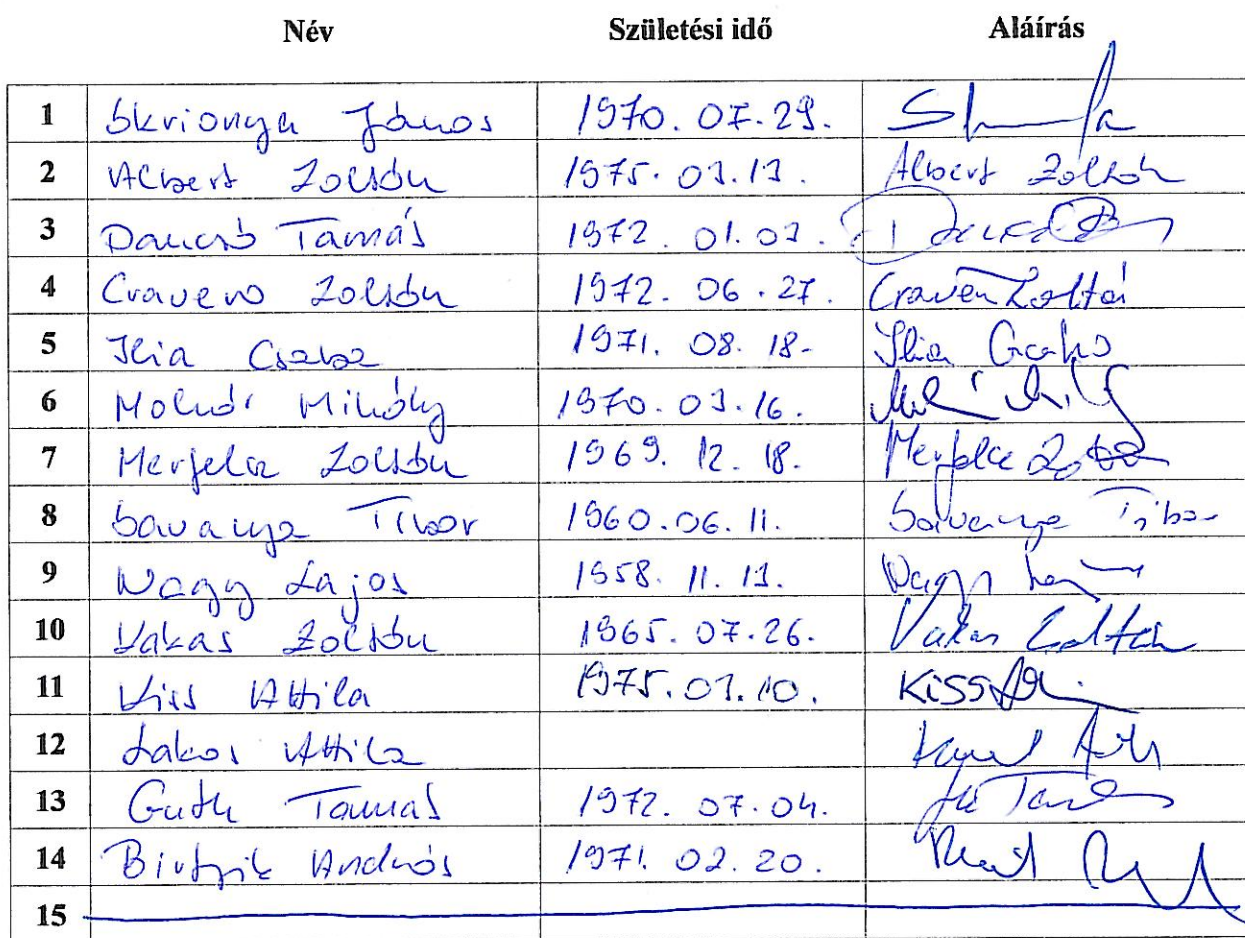 Név Születési idő Aláírás
1 Skrionya János 1970. 07. 29.
2 Albert Zoltán 1975. 03. 13. Albert Zoltán
3 Dancsó Tamás 1972. 01. 03.
4 Cravero Zoltán 1972. 06. 27. Craven Zoltán
5 Ilia Csaba 1971. 08. 18. Ilia Csaba
6 Molnár Mihály 1970. 03. 16.
7 Merfelcz Zoltán 1969. 12. 18.
8 Savanya Tibor 1960. 06. 11. Savanya Tibor
9 Nagy Lajos 1958. 11. 13. Nagy
10 Vakas Zoltán 1965. 07. 26. Vakas Zoltán
11 Kiss Attila 1975. 03. 10. Kiss
12 Lakos Attila
13 Guth Tamás 1972. 07. 04.
14 András 1971. 02. 20.
15